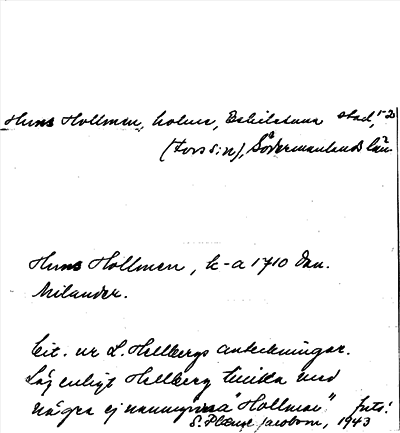 Huns Hollmen, holme, Eskilstuna stad,
(Fors s:n), Södermanlands län.
Huns Hollmen, k-a 1710 Dan.
Milander.
Cit. ur L. Hellbergs anteckningar.
Låg enligt Hellberg tillika med
några ej namngivna "Hollmar".
S. Plænge Jacobson, 1943